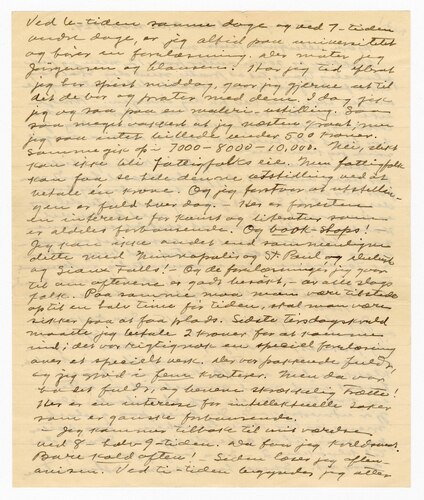 Ved 6-tiden somme dage og ved 7-tiden
andre dage, er jeg altid paa universitetet
og hører en forelæsning, der møter jeg
Jørgensen og Clausen! Har jeg tid efterat
jeg har spist middag, gaar jeg gjerne ut til
det de bor og prater med dem. I dag gik
jeg og saa paa en maleri-utstilling. Saa
saa meget vakkert at jeg næsten graat, men
jeg saa intet billede under 500 kroner.
Somme gik op i 7000-8000-10,000. Nei, slikt
kan ikke bli fattigfolks eie. Men fattigfolk
kan faa se hele denne utstilling ved at
betale en krone. Og jeg forstaar at utstillin-
gen er fuld hver dag. — Her er forresten
en interesse for kunst og literatur som
er aldeles forbausende. Og book-shops!
Jeg kan ikke andet end sammenligne
dette med Minneapolis og St. Paul og Duluth
og Sioux Falls! — Og de forelæsninger jeg gaar
til om aftenene er godt besøkt, — av alle slags
folk. Paa somme maa man være tilstede
op til en halv time før tiden, skal man være
sikker paa at faa plads. Sidste tirsdagskveld
maatte jeg betale 2 kroner for at komme
ind; det var rigtignok en speciel forelæsning
over et specielt verk. Der var pakkende fuldt,
og jeg stod i fem kvarter. Men da var
det fuldt, og benene skrækkelig trætte!
Her er en interesse for intellektuelle saker
som er ganske forbausende.
— Jeg kommer tilbake til mit værelse
ved 8- halv 9-tiden. Da faar jeg kveldsmat.
Bare kold aften! Siden læser jeg aften-
avisen. Ved ti-tiden begynder jeg atter